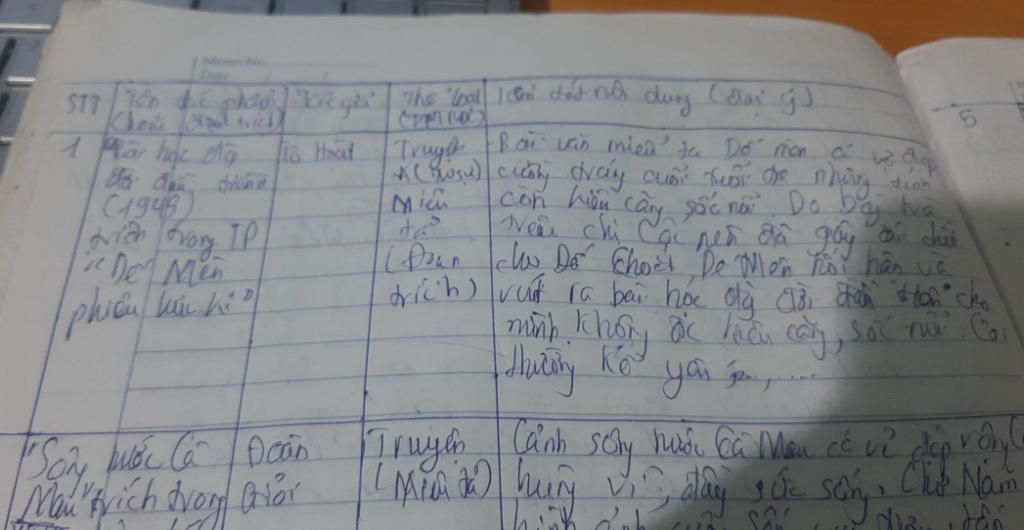 Memo No.
Date / /
STT Tên tác phẩm Tác giả Thể loại Tóm tắt nội dung (đại ý)
(hoặc đoạn trích)
5
1 "Bài học đg Tô Hoài Truyện Bài văn miêu tả Dế mèn có vẻ đẹp
đời đầu tiên cường tráng cuối tuổi trẻ những tính
(1948) Miêu còn kiêu căng sốc nổi. Do bày trò
trích trong TP tả trêu chị Cốc nên đã gây cái chết
"Dế Mèn (Đoạn cho Dế Choắt, Dế Mèn hối hận và
phiêu lưu kí" trích) rút ra bài học đg đời đầu tiên cho
mình. Không đc kiêu căng, sốc nổi. Coi
thường kẻ yếu
"Sông nước Cà Đoàn Truyện Cảnh sông nước Cà Mau có vẻ đẹp rộng
Mau" trích trong Giỏi (Miêu tả) hùng vĩ, đầy sức sống. Chợ Năm